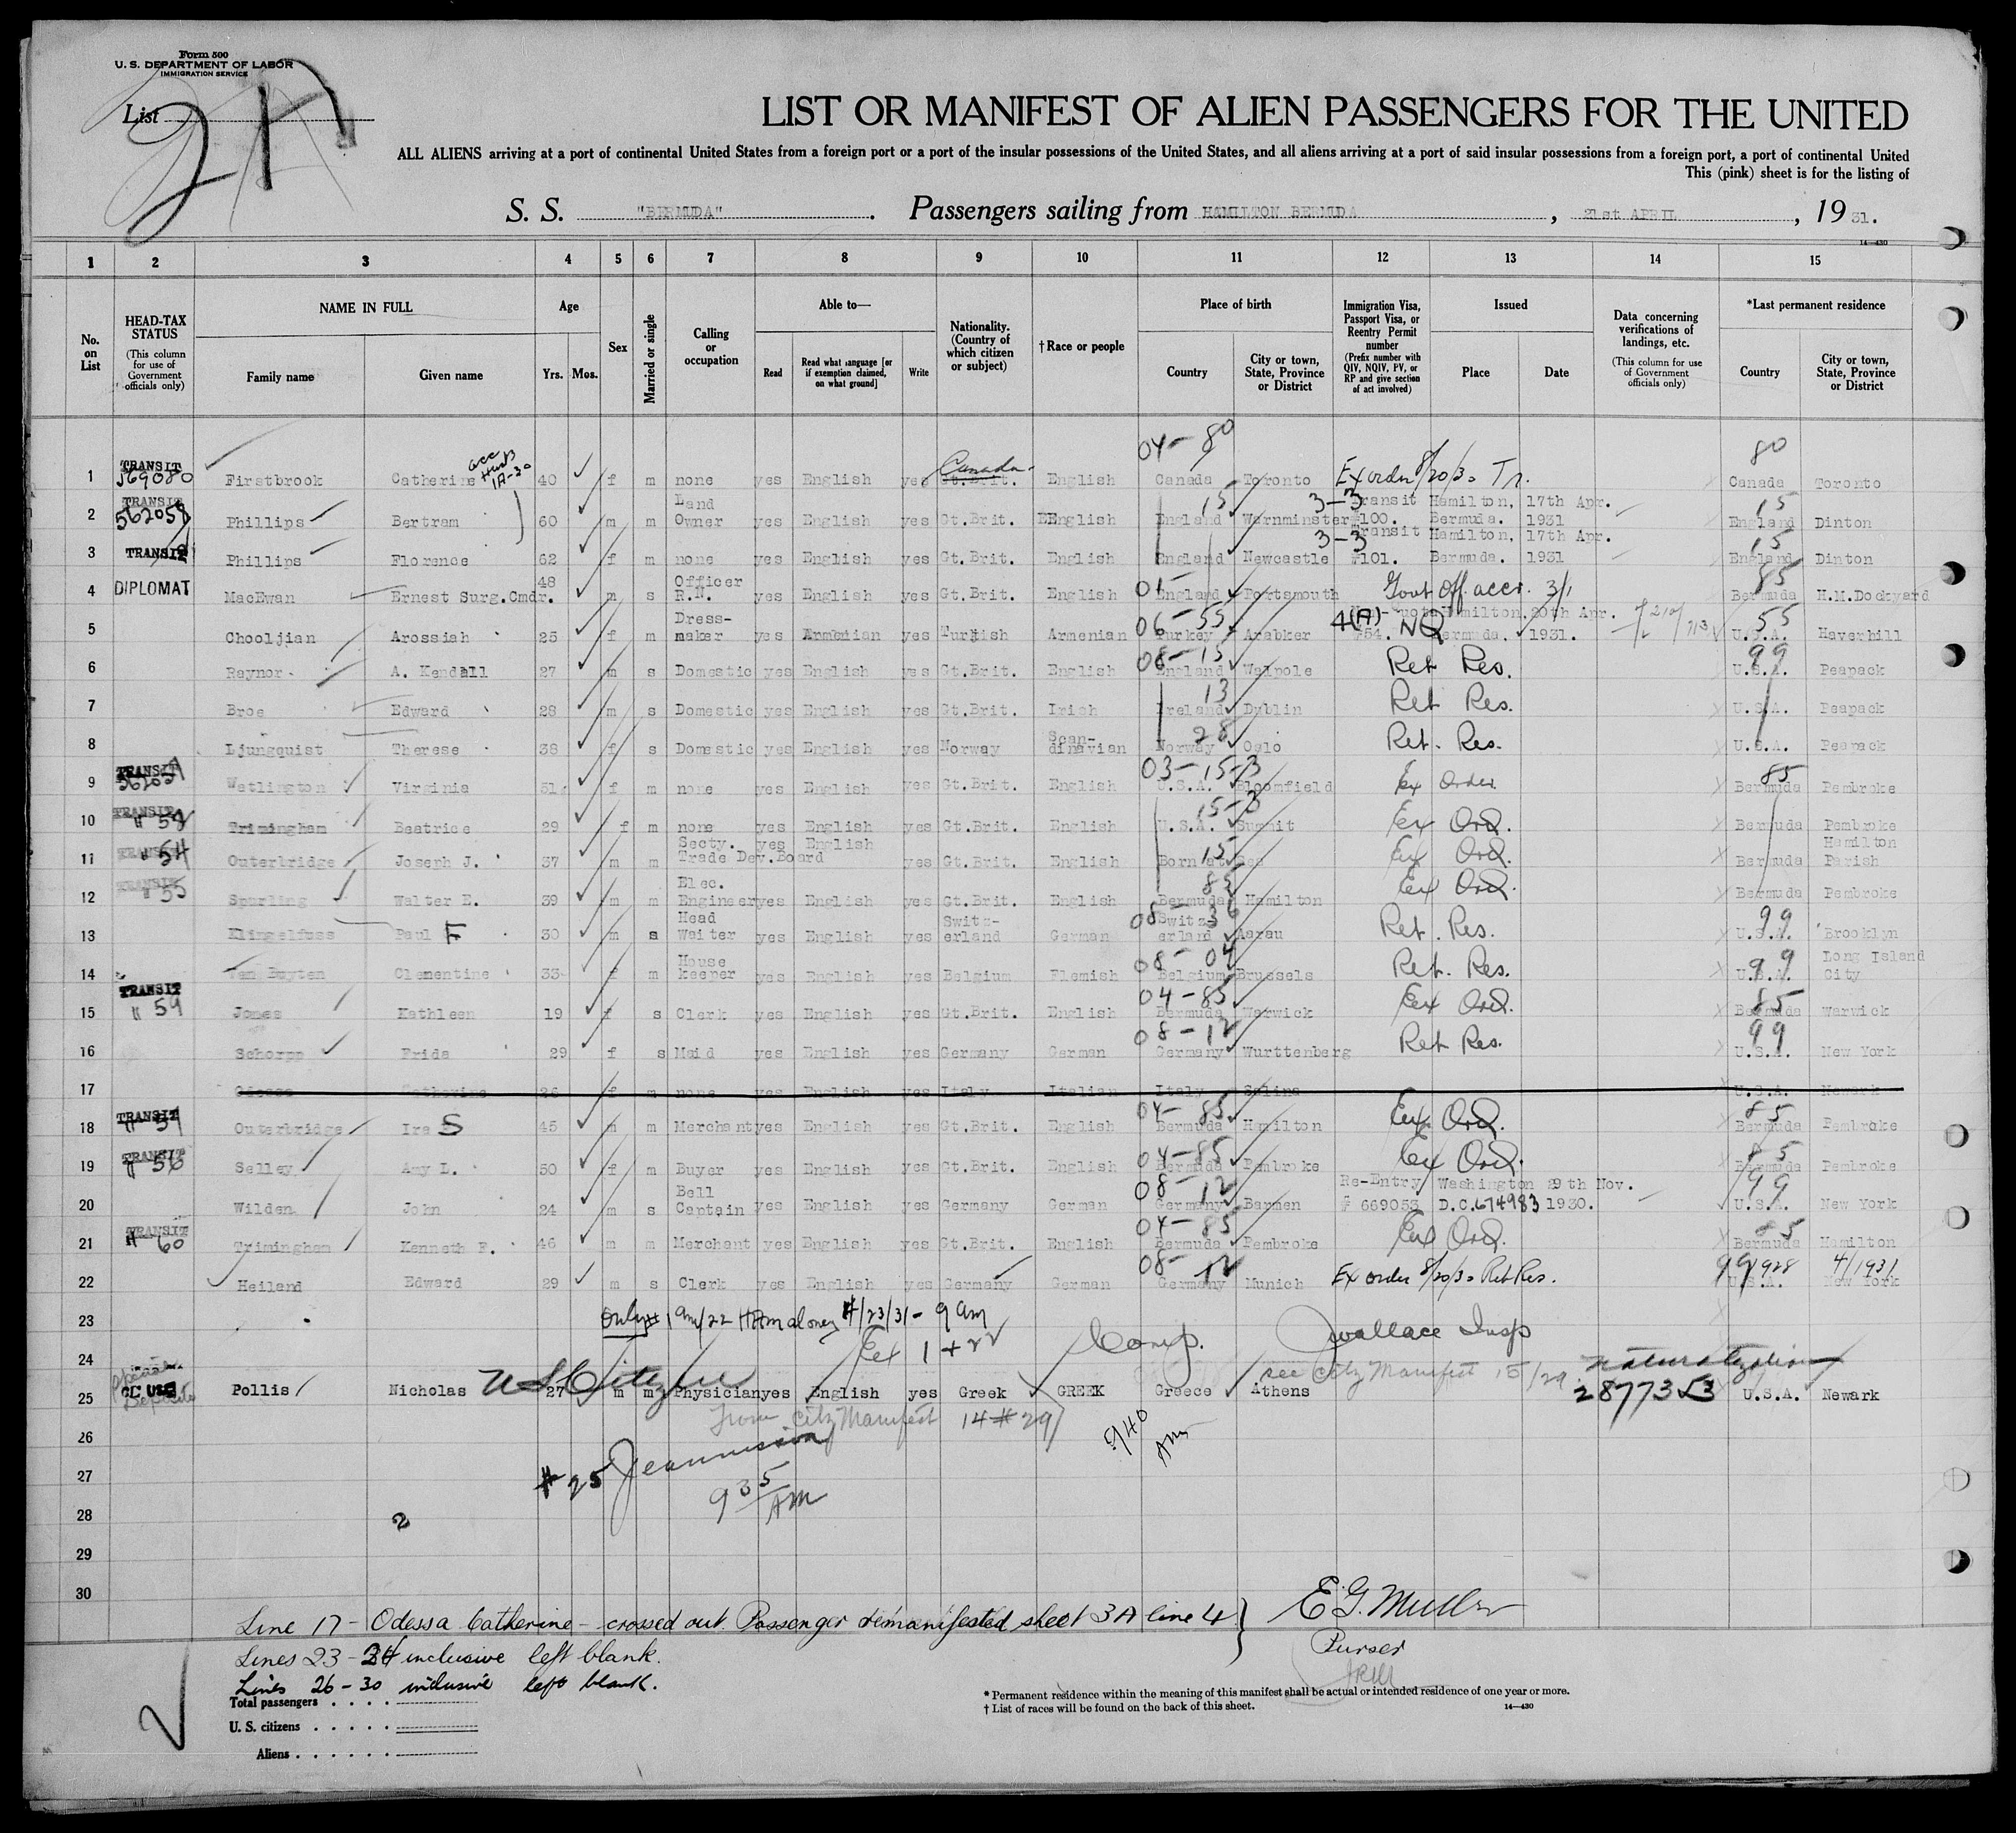 Form 500
U. S. DEPARTMENT OF LABOR
IMMIGRATION SERVICE
List 2A
LIST OR MANIFEST OF ALIEN PASSENGERS FOR THE UNITED
ALL ALIENS arriving at a port of continental United States from a foreign port or a port of the insular possessions of the United States, and all aliens arriving at a port of said insular possessions from a foreign port, a port of continental United
This (pink) sheet is for the listing of
S. S. "BERMUDA". Passengers sailing from HAMILTON BERMUDA, 21st APRIL, 1931.
14—430
1 2 3 4 5 6 7 8 9 10 11 12 13 14 15
No. on List
HEAD-TAX STATUS (This column for use of Government officials only)
NAME IN FULL Family name Given name
Age Yrs. Mos.
Sex
Married or single
Calling or occupation
Able to— Read Read what language [or if exemption claimed, on what ground] Write
Nationality. (Country of which citizen or subject)
† Race or people
Place of birth Country City or town, State, Province or District
Immigration Visa, Passport Visa, or Reentry Permit number (Prefix number with QIV, NQIV, PV, or RP and give section of act involved)
Issued Place Date
Data concerning verifications of landings, etc. (This column for use of Government officials only)
*Last permanent residence Country City or town, State, Province or District
04-80 80
1 TRANSIT 569080 Firstbrook Catherine acc Husb 1A-30 40 f m none yes English yes Gt.Brit. Canada English Canada Toronto Ex order 8/20/30 Tr. Canada Toronto
2 TRANSIT 562057 Phillips Bertram 60 m m Land Owner yes English yes Gt.Brit. English 15 England Warnminster 3-3 Transit #100. Hamilton, Bermuda. 17th Apr. 1931 15 England Dinton
3 TRANSIT Phillips Florence 62 f m none yes English yes Gt.Brit. English England Newcastle 3-3 Transit #101. Hamilton, Bermuda. 17th Apr. 1931 15 England Dinton
4 DIPLOMAT MacEwan Ernest Surg.Cmdr. 48 m s Officer R.N. yes English yes Gt.Brit. English England Portsmouth Govt Off. accr. 3/1 85 Bermuda H.M.Dockyard
5 Chooljian Arossiah 25 f m Dress-maker yes Armenian yes Turkish Armenian 06-55 Turkey Arabker 4(A) #54. NQ Hamilton, Bermuda. 20th Apr. 1931. 55 U.S.A. Haverhill
6 Raynor A. Kendall 27 m s Domestic yes English yes Gt.Brit. English 08-15 England Walpole Ret Res. 99 U.S.A. Peapack
7 Broe Edward 28 m s Domestic yes English yes Gt.Brit. Irish 13 Ireland Dyblin Ret Res. U.S.A. Peapack
8 Ljungquist Therese 38 f s Domestic yes English yes Norway Scan-dinavian 28 Norway Oslo Ret. Res. U.S.A. Peapack
9 TRANSIT Watlington Virginia 51 f m none yes English yes Gt.Brit. English 03-15-3 U.S.A. Bloomfield Ex Order. 85 Bermuda Pembroke
10 TRANSIT Trimingham Beatrice 29 f m none yes English yes Gt.Brit. English 15-3 U.S.A. Summit Ex Ord. Bermuda Pembroke
11 TRANSIT " 54 Outerbridge Joseph J. 37 m m Secty. Trade Dev.Board yes English yes Gt.Brit. English 15 Born at Sea Ex Ord. Bermuda Hamilton Parish
12 TRANSIT " 55 Spurling Walter E. 39 m m Elec. Engineer yes English yes Gt.Brit. English 85 Bermuda Hamilton Ex Ord. Bermuda Pembroke
13 Klingelfuss Paul F 30 m s Head Waiter yes English yes Switz-erland German 08-36 Switz-erland Aarau Ret. Res. 99 U.S.A. Brooklyn
14 Van Buyten Clementine 33 f m House keeper yes English yes Belgium Flemish 08-04 Belgium Brussels Ret. Res. 99 U.S.A. Long Island City
15 TRANSIT " 59 Jones Kathleen 19 f s Clerk yes English yes Gt.Brit. English 04-85 Bermuda Warwick Ex Ord. 85 Bermuda Warwick
16 Schorpp Frida 29 f s Maid yes English yes Germany German 08-12 Germany Wurttenberg Ret Res. 99 U.S.A. New York
17 Odessa Catherine 26 f m none yes English yes Italy Italian Italy Salina U.S.A. Newark
18 TRANSIT Outerbridge Ira S 45 m m Merchant yes English yes Gt.Brit. English 04-85 Bermuda Hamilton Ex Ord. 85 Bermuda Pembroke
19 TRANSIT " 56 Selley Amy L. 50 f m Buyer yes English yes Gt.Brit. English 04-85 Bermuda Pembroke Ex Ord. 85 Bermuda Pembroke
20 Wilden John 24 m s Bell Captain yes English yes Germany German 08-12 Germany Barmen Re-Entry # 669053 Washington D.C. 674983 29th Nov. 1930. 99 U.S.A. New York
21 TRANSIT " 60 Trimingham Kenneth F. 46 m m Merchant yes English yes Gt.Brit. English 04-85 Bermuda Pembroke Ex Ord. 85 Bermuda Hamilton
22 Heiland Edward 29 m s Clerk yes English yes Germany German 08-12 Germany Munich Ex order 8/20/30 Ret Res. 99 1928 U.S.A. 4/1931 New York
23 only 4/23/31 - 9 am
Ex 1 + 22 Comp. JWallace Insp
24 see Citz Manifest 15/29 Naturalization
25 Pollis Nicholas US Citizen 27 m m Physician yes English yes Greek GREEK Greece Athens U.S.A. Newark
from Citz Manifest 14 # 29
26 940 Am
27 # 25
935 AM
28 2
29
30
Line 17 - Odessa Catherine - crossed out. Passenger remanifested sheet 3A line 4 } E.G. Muller
Purser
Lines 23 - 24 inclusive left blank.
Lines 26 - 30 inclusive left blank.
Total passengers . . . .
U. S. citizens . . . . .
Aliens . . . . . .
* Permanent residence within the meaning of this manifest shall be actual or intended residence of one year or more.
† List of races will be found on the back of this sheet.
14—430